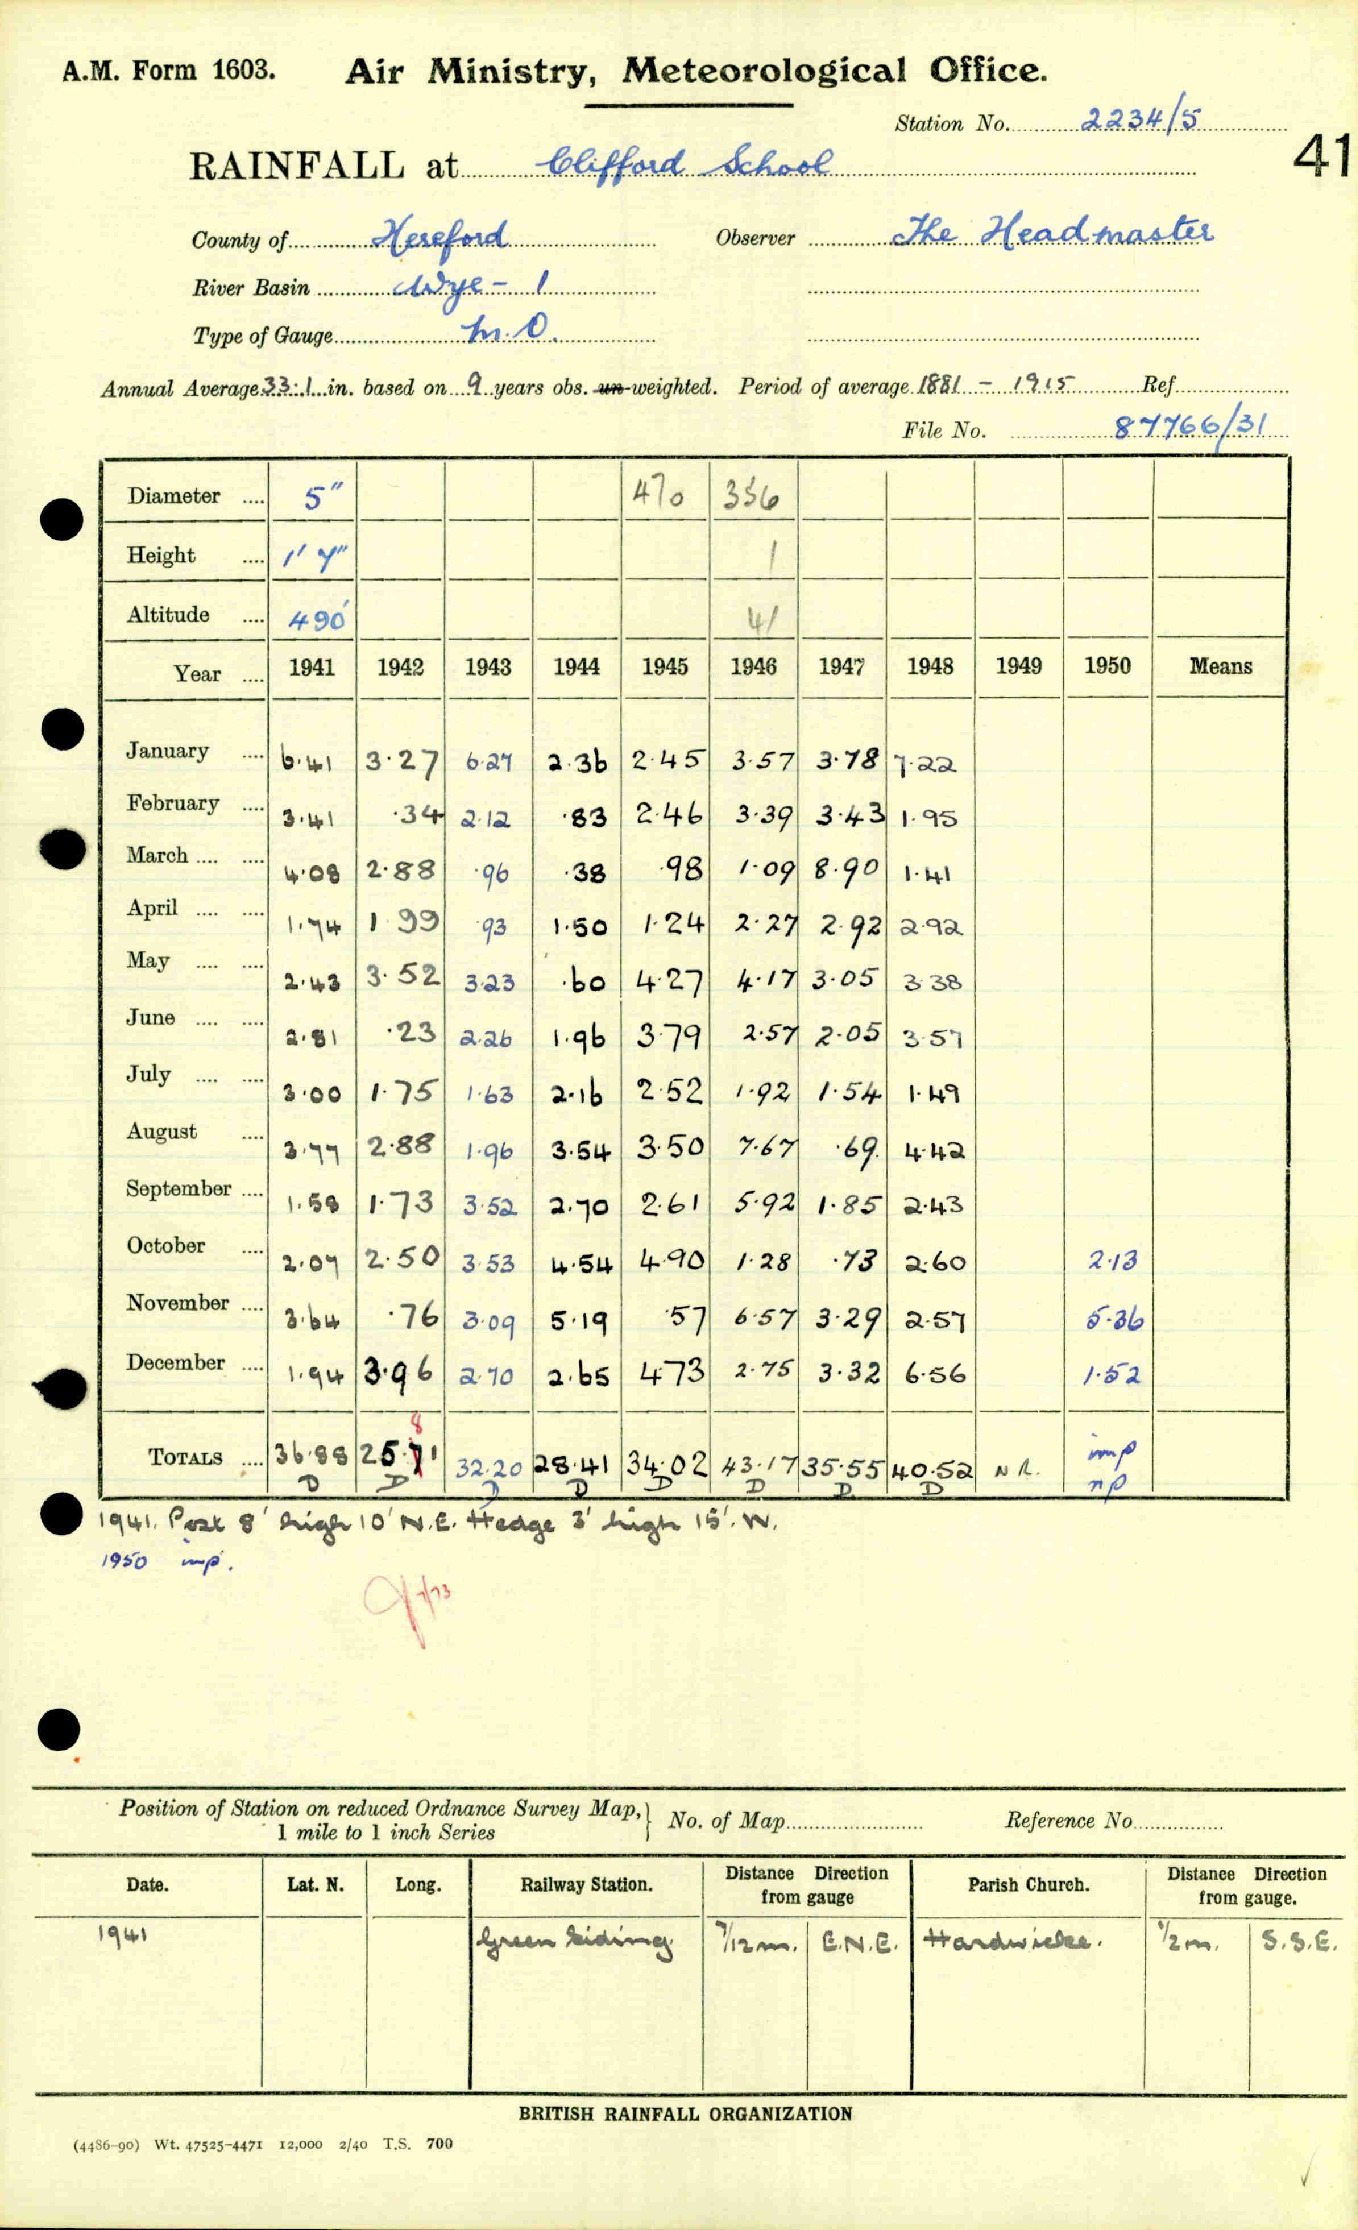 A.M. Form 1603. Air Ministry, Meteorological Office.
Station No. 2234/5
41
RAINFALL at Clifford School
County of Hereford Observer The Headmaster
River Basin Wye - 1
Type of Gauge M.O.
Annual Average 33.1 in. based on 9 years obs. un-weighted. Period of average 1881 - 1915 Ref.
File No. 87766/31
Diameter .... 5" 470 336
Height .... 1' 7" 1
Altitude .... 490' 41
Year .... 1941 1942 1943 1944 1945 1946 1947 1948 1949 1950 Means
January .... 6.41 3.27 6.27 2.36 2.45 3.57 3.78 7.22
February .... 3.41 .34 2.12 .83 2.46 3.39 3.43 1.95
March .... .... 4.08 2.88 .96 .38 .98 1.09 8.90 1.41
April .... .... 1.74 1.99 .93 1.50 1.24 2.27 2.92 2.92
May .... .... 2.43 3.52 3.23 .60 4.27 4.17 3.05 3.38
June .... .... 2.81 .23 2.26 1.96 3.79 2.57 2.05 3.57
July .... .... 3.00 1.75 1.63 2.16 2.52 1.92 1.54 1.49
August .... 3.77 2.88 1.96 3.54 3.50 7.67 .69 4.42
September .... 1.58 1.73 3.52 2.70 2.61 5.92 1.85 2.43
October .... 2.07 2.50 3.53 4.54 4.90 1.28 .73 2.60 2.13
November .... 3.64 .76 3.09 5.19 .57 6.57 3.29 2.57 5.36
December .... 1.94 3.96 2.70 2.65 4.73 2.75 3.32 6.56 1.52
8
TOTALS .... 36.88 25.71 32.20 28.41 34.02 43.17 35.55 40.52 N R. imp
D D D D D D D D np
1941. Post 8' high 10' N.E. Hedge 3' high 15'. W.
1950 imp.
7/73
Position of Station on reduced Ordnance Survey Map, } No. of Map Reference No.
1 mile to 1 inch Series
Date. Lat. N. Long. Railway Station. Distance Direction from gauge Parish Church. Distance Direction from gauge.
1941 Green Siding 7/12 m. E.N.E. Hardwicke. 1/2 m. S.S.E.
BRITISH RAINFALL ORGANIZATION
(4486-90) Wt. 47525-4471 12,000 2/40 T.S. 700